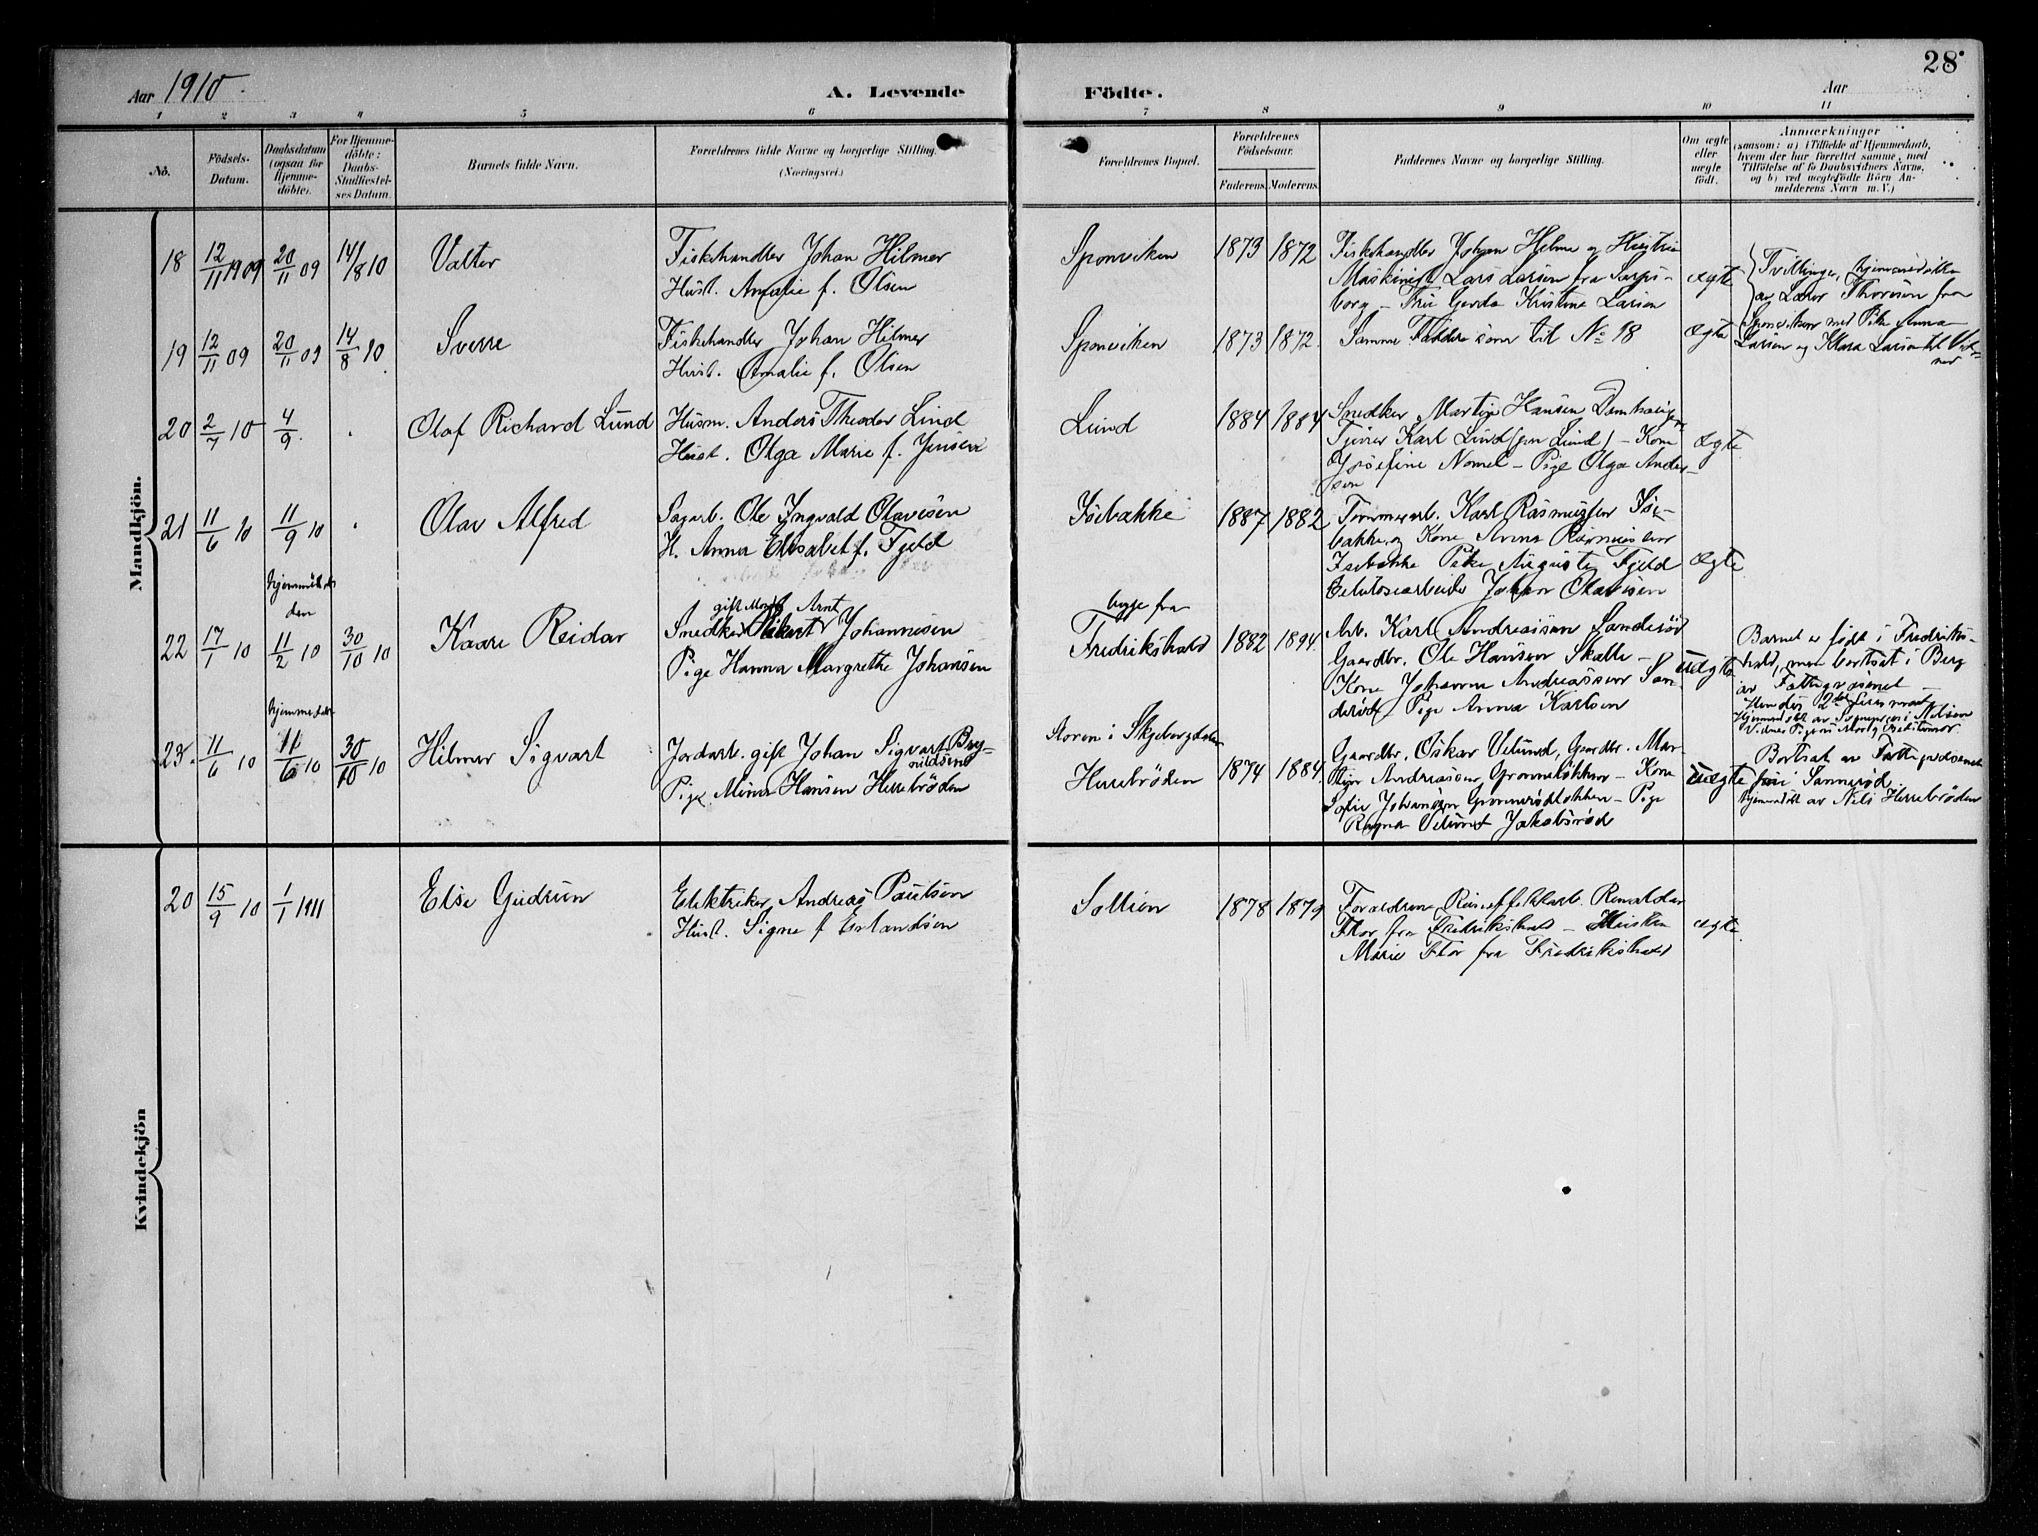 28
Aar 1910.
A. Levende
Födte.
Aar
1 2 3 4 5 6 7 8 9 10 11
No.
Födsels-
Datum.
Daabsdatum
(ogsaa for
Hjemme-
döbte).
For Hjemme-
döbte:
Daabs-
Stadfæstel-
ses Datum.
Barnets fulde Navn.
Forældrenes fulde Navne og borgerlige Stilling.
(Næringsvei.)
Forældrenes Bopæl.
Forældrenes
Födselsaar.
Faderens. Moderens.
Faddernes Navne og borgerlige Stilling.
Om ægte
eller
uægte
födt.
Anmærkninger
(saasom: a) i Tilfælde af Hjemmedaab,
hvem der har forrettet samme, med
Tilföielse af to Daabsvidners Navne,
og b) ved uægtefödte Börn An-
melderens Navn m. V.)
Mandkjön.
18 12/11 1909 20/11 09 14/8 10 Valter
Fiskehandler Johan Hilmer
Hust. Amalie f. Olsen
Sponviken 1873 1872
Fiskehandler Johan Hilmer og Hustru
Maskinist Lars Larsen fra Sarps-
borg - Fru Gerda Kristine Larsen
ægte
Tvillinger, hjemmedöbte
av Lærer Thoresen fra
Sponviken med Pike Anna
Larsen og Klara Larsen til Vid-
ner
19 12/11 09 20/11 09 14/8 10 Sverre
Fiskehandler Johan Hilmer
Hust. Amalie f. Olsen
Sponviken 1873 1872.
Samme Faddere som til No 18
ægte
20 2/7 10 4/9. Olaf Richard Lund
Husm. Anders Theodor Lind
Hust. Olga Marie f. Jensen
Lund 1884 1884
Snedker Martin Hansen
Tjener Karl Lund (gen Lund) - Kone
Josefine Nomel - Pige Olga Ander-
sen
ægte
21 11/6 10 11/9 10 Olav Alfred
Sagarb. Ole Ingvald Olavesen
H. Anna Elisabet f. Fjeld
Isebakke 1887 1882
Tömmerarb. Karl Rasmussen Ise-
bakke og Kone Anna Rasmussen
Isebakke Pike Auguste Fjeld
Celulosearbeider Johan Olavesen
ægte
hjemmedöbt
den
22 17/1 10 11/2 10 30/10 10 Kaare Reidar
gift Arnt
Snedker Johannesen
Pige Hanna Margrethe Johansen
begge fra
Fredrikshald 1882 1894
Arb. Karl Andreassen Sanderöd
Gaardbr. Ole Hansen Skalle -
Kone Johanne Andreassen San-
deröd - Pige Anna Karlsen
uægte
Barnet er födt i Fredriks-
hald, men bortsat i Berg
av Fattigvæsenet -
Hendes 2det
Hjemmedöbt av Nilsen
23. 11/6 10 11/6 10 30/10 10 Hilmer Sigvart
Jordarb. gift Johan Sigvart Bry-
nildsen
Pige Mina Hansen Herrebröden
Storen i Skjebergdalen
Herrebröden 1874 1884
Gaardbr. Oskar Velund, Gaardbr. Mar-
Andreassen - Kone
Sofie Johansen - Pige
Ragna Velund Jakobsröd
uægte
Bortsat av Fattigvæsenet
i Sanneröd.
hjemmedöbt av Nils Herrebröden
Kvindekjön
20 15/9 10 1/1 1911 Else Gudrun
Elektriker Andreas Paulsen
Hust. Signe f Erlandsen
Sollien 1878 1879
Forældrene Reinholdar
Flor fra Fredrikshald -
Marie Flor fra Fredrikshald
ægte